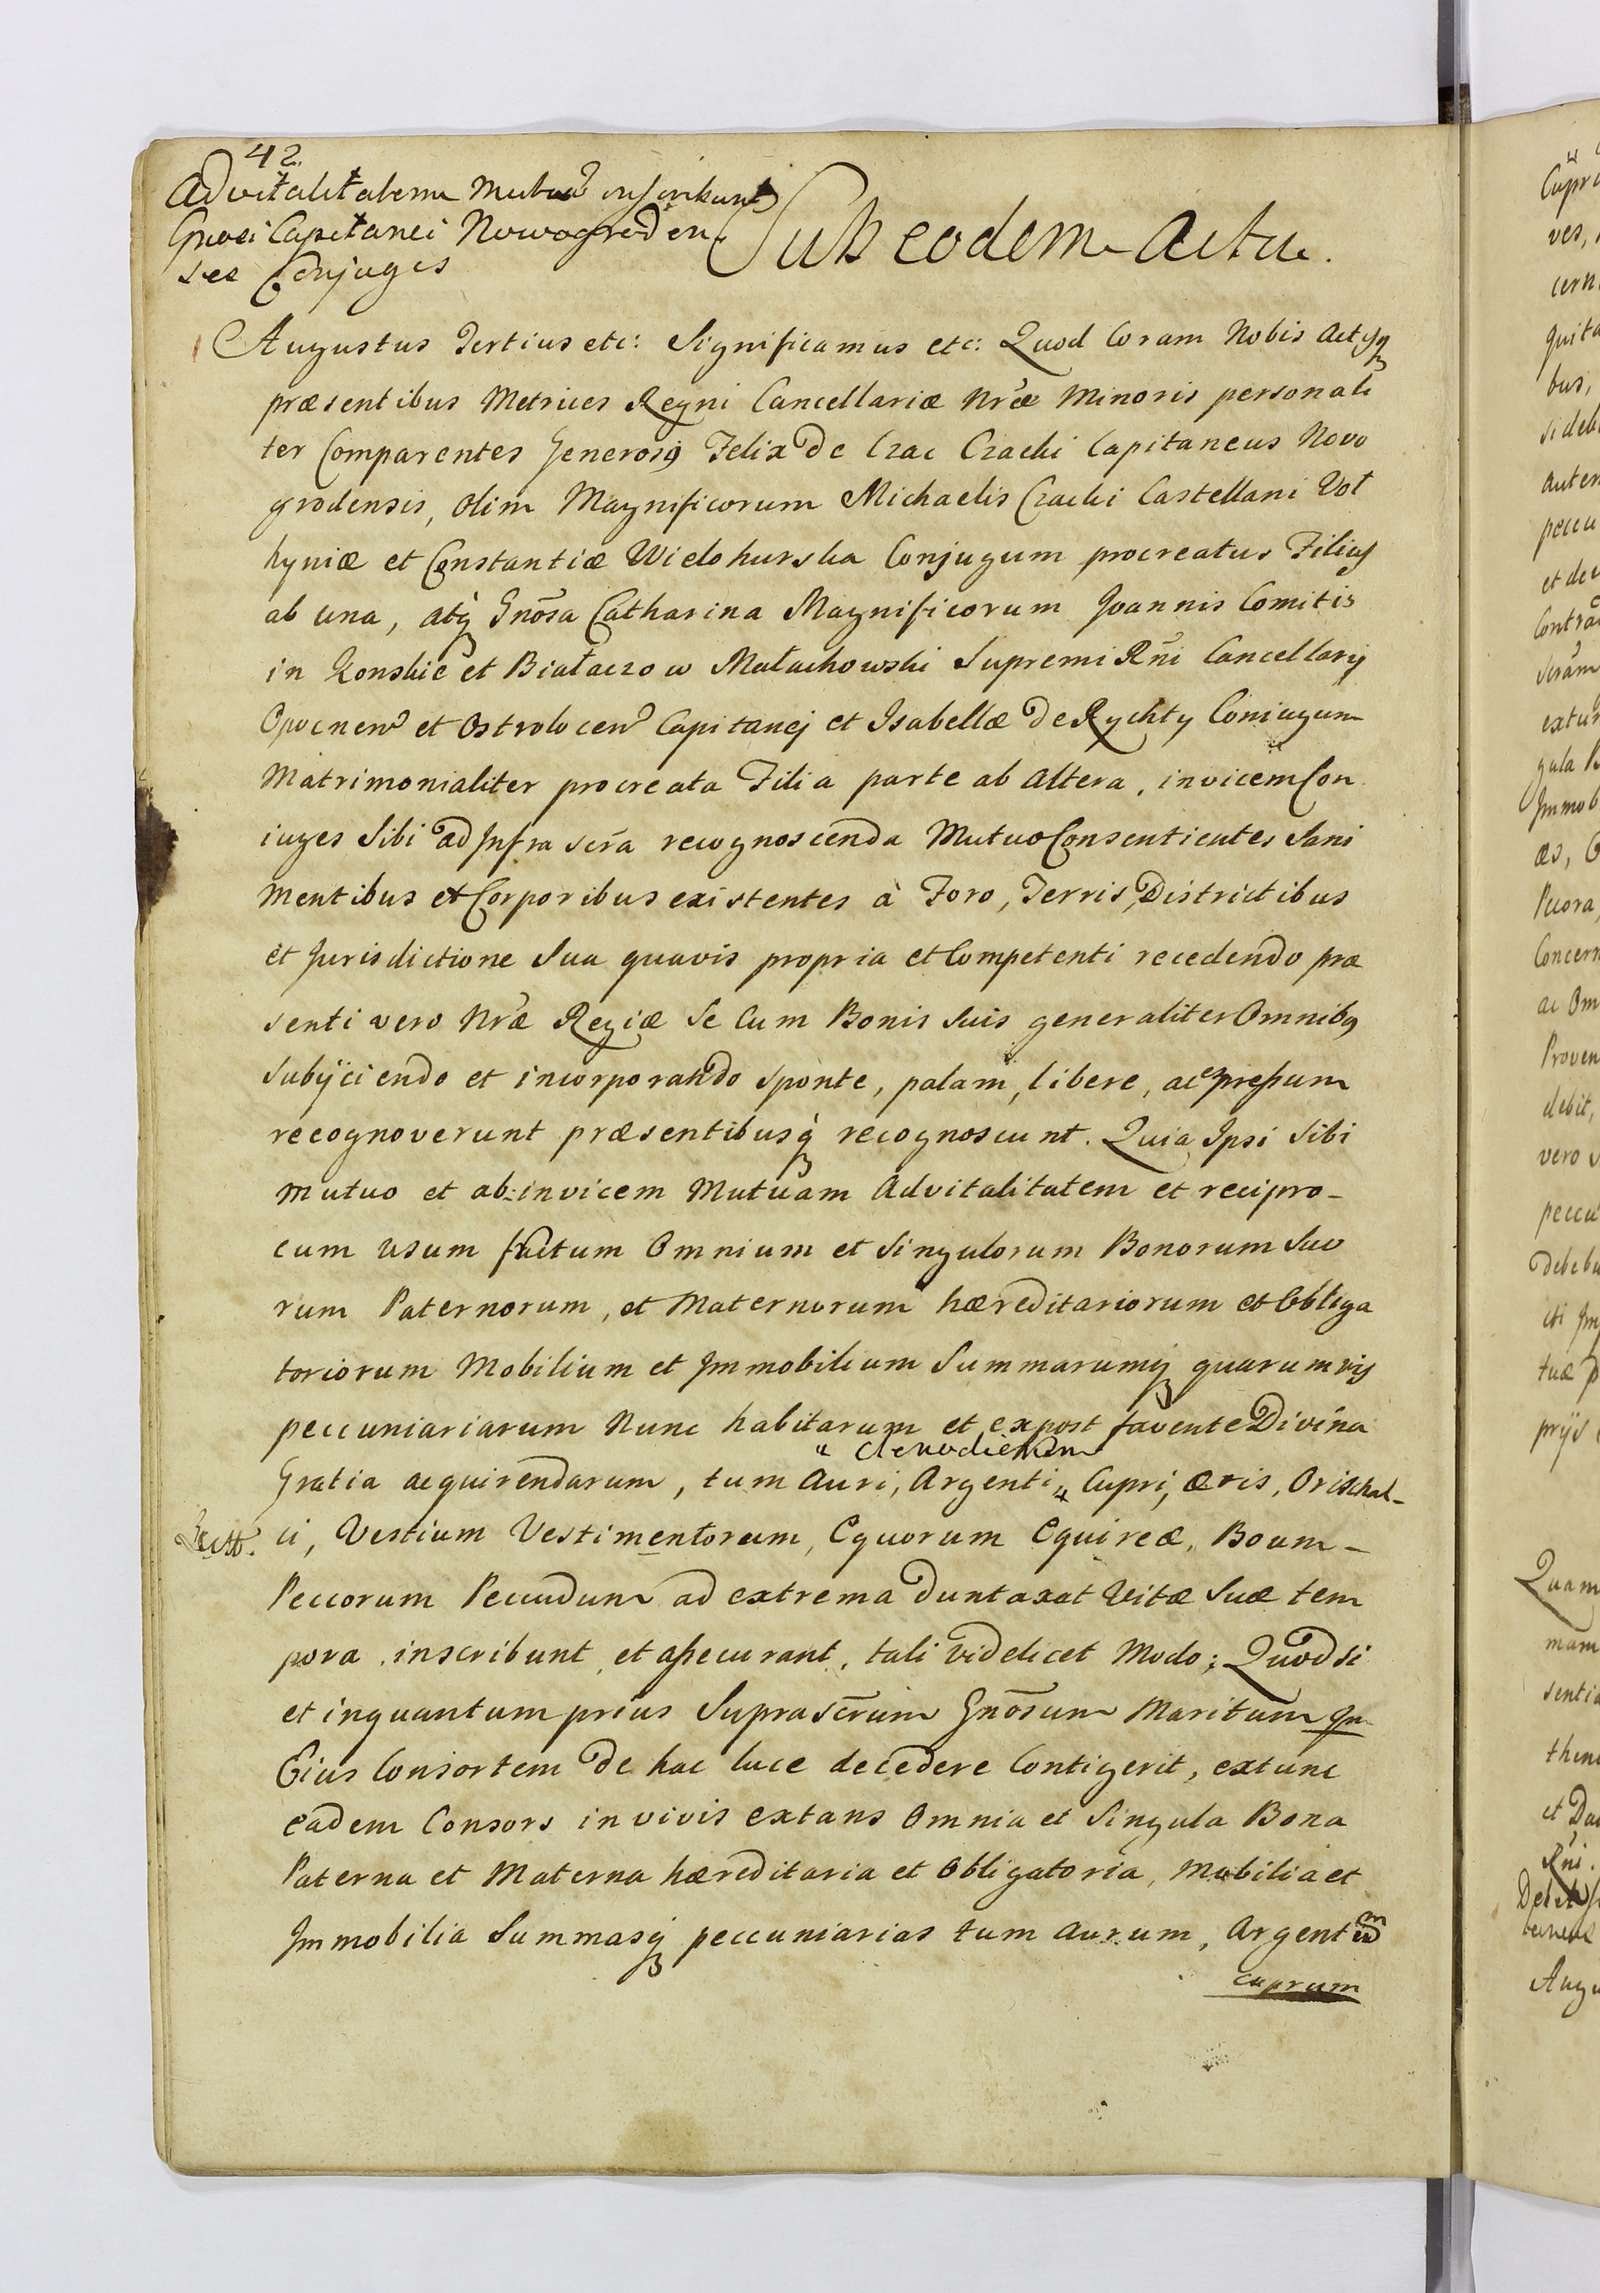 42.
Advitalitatem Mutuã inscribunt
Gnosi Capitanei Nowogroden
ses Conjuges
Sub eodem Actu.
Augustus Tertius etc: Significamus etc: Quod Coram Nobis Actisq
præsentibus Metrices Regni Cancellariæ Nræ Minoris personali
ter Comparentes Generosq Felix De Czac Czacki Capitaneus Novo
grodensis, olim Magnificorum Michaelis Czacki Castellani Vol
hyniæ et Constantiæ Wielohurska Conjugum procreatus Filius
ab una, atq Gnõsa Catharina Magnificorum Joannis Comitis
in Konskie et Białaczow Małachowski Supremi Rñi Cancellarij
Opocnen et Ostrolocen Capitanej et Isabellæ De Rychty Coniugum
Matrimonialiter procreata Filia parte ab altera, invicem Con
iuges Sibi ad Infra scrã recognoscenda Mutuo Consentientes Sani
Mentibus et Corporibus existentes à Foro, Terris, Districtibus
et Jurisdictione Sua quavis propria et Competenti recedendo præ
senti vero Nræ Regiæ Se Cum Bonis Suis generaliter Omnibq
Subijciendo et incorporando Sponte, palam, libere, ac expressum
recognoverunt præsentibusq recognoscunt. Quia Ipsi Sibi
mutuo et ab invicem Mutuam Advitalitatem et recipro-
cum usum fructum Omnium et Singulorum Bonorum Suo
rum Paternorum, et Maternorum hæreditariorum et Obliga
toriorum Mobilium et Immobilium Summarumq quarumvis
peccuniariarum Nunc habitarum et expost favente Divina
" Clenodiorum
Gratia acquirendarum, tum Auri, Argenti, " Cupri, æris, Orichal-
ci, Vestium Vestimentorum, Equorum Equireæ, Boum-
Peccorum Pecudum ad extrema Duntaxat Vitæ Suæ tem
pora inscribunt et assecurant, tali videlicet Modo; Quod si
et inquantum prius Suprascrum Gnõsum Maritum qu
Eius Consortem De hac luce decedere Contigerit, extunc
eadem Consors in vivis extans Omnia et Singula Bona
Paterna et Materna hæreditaria et Obligatoria, Mobilia et
Immobilia Summasq peccuniarias tum Aurum, Argentum
cuprum